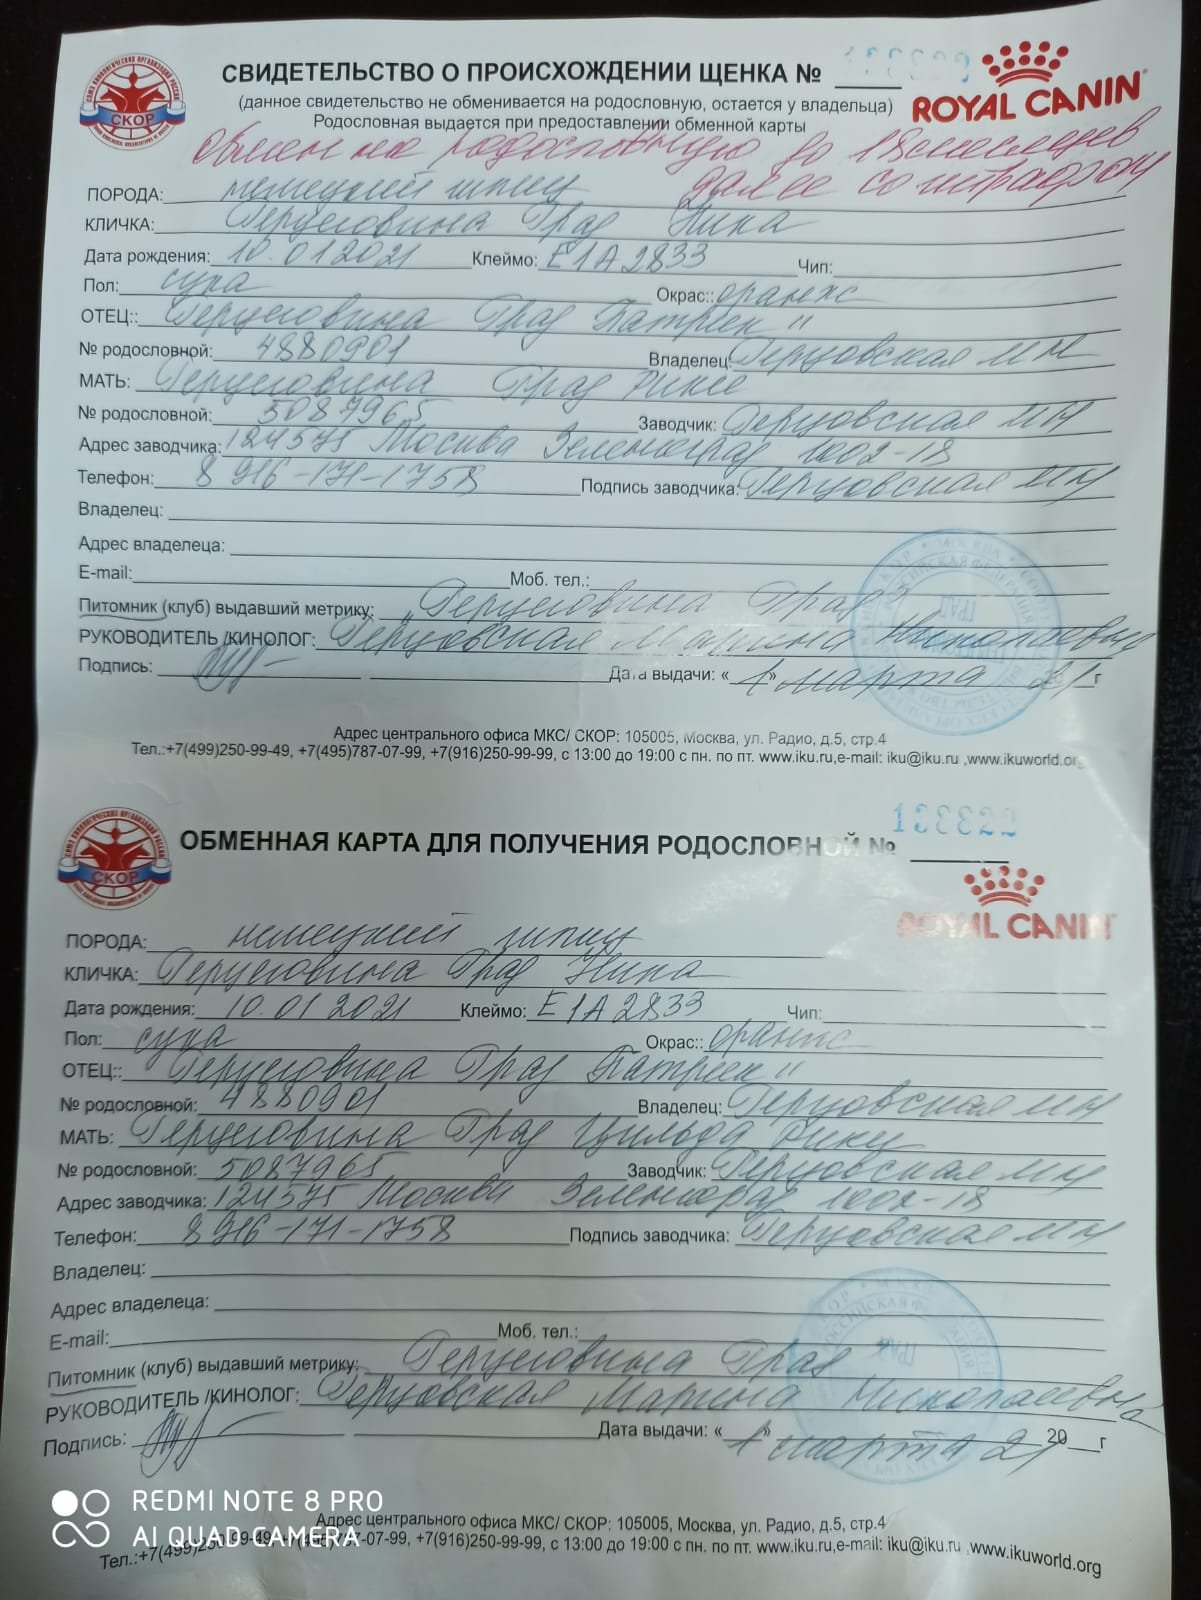 СВИДЕТЕЛЬСТВО О ПРОИСХОЖДЕНИИ ЩЕНКА №
(данное свидетельство не обменивается на родословную, остается у владельца)
Родословная выдается при предоставлении обменной карты
СКОР
ROYAL CANIN
Обмен на родословную до 18 месяцев
далее со штрафом
ПОРОДА: немецкий шпиц
КЛИЧКА: Герцеговина Град Ника
Дата рождения: 10.01 2021 Клеймо: Е1А 2833 Чип:
Пол: сука Окрас:: оранж
ОТЕЦ:: Герцеговина Град Патрик"
№ родословной: 4880901 Владелец: Герцовская МН
МАТЬ: Герцеговина Град
№ родословной: 5087965 Заводчик: Герцовская МН
Адрес заводчика: 124575 Москва Зеленоград 1002-18
Телефон: 8 916-171-1758 Подпись заводчика: Герцовская МН
Владелец:
Адрес владелеца:
E-mail: Моб. тел.:
Питомник (клуб) выдавший метрику: "Герцеговина Град"
РУКОВОДИТЕЛЬ /КИНОЛОГ: Герцовская Марина Николаевна
Подпись: Дата выдачи: «1» марта 21 г
Адрес центрального офиса МКС/ СКОР: 105005, Москва, ул. Радио, д.5, стр.4
Тел.:+7(499)250-99-49, +7(495)787-07-99, +7(916)250-99-99, с 13:00 до 19:00 с пн. по пт. www.iku.ru,e-mail: iku@iku.ru ,www.ikuworld.org
133822
ОБМЕННАЯ КАРТА ДЛЯ ПОЛУЧЕНИЯ РОДОСЛОВНОЙ №
СКОР
ROYAL CANIN
ПОРОДА: немецкий шпиц
КЛИЧКА: Герцеговина Град Ника
Дата рождения: 10.01 2021 Клеймо: Е1А 2833 Чип:
Пол: сука Окрас:: оранж
ОТЕЦ:: Герцеговина Град Патрик"
№ родословной: 4880901 Владелец: Герцовская МН
МАТЬ: Герцеговина Град Цильда Рики
№ родословной: 5087965 Заводчик: Герцовская МН
Адрес заводчика: 124575 Москва Зеленоград 1002-18
Телефон: 8 916-171-1758 Подпись заводчика: Герцовская МН
Владелец:
Адрес владелеца:
E-mail: Моб. тел.:
Питомник (клуб) выдавший метрику: Герцеговина Град"
РУКОВОДИТЕЛЬ /КИНОЛОГ: Герцовская Марина Николаевна
Подпись: Дата выдачи: «1» марта 21 20 г
Адрес центрального офиса МКС/ СКОР: 105005, Москва, ул. Радио, д.5, стр.4
Тел.:+7(499)250-99-49, +7(495)787-07-99, +7(916)250-99-99, с 13:00 до 19:00 с пн. по пт. www.iku.ru,e-mail: iku@iku.ru ,www.ikuworld.org
REDMI NOTE 8 PRO
AI QUAD CAMERA